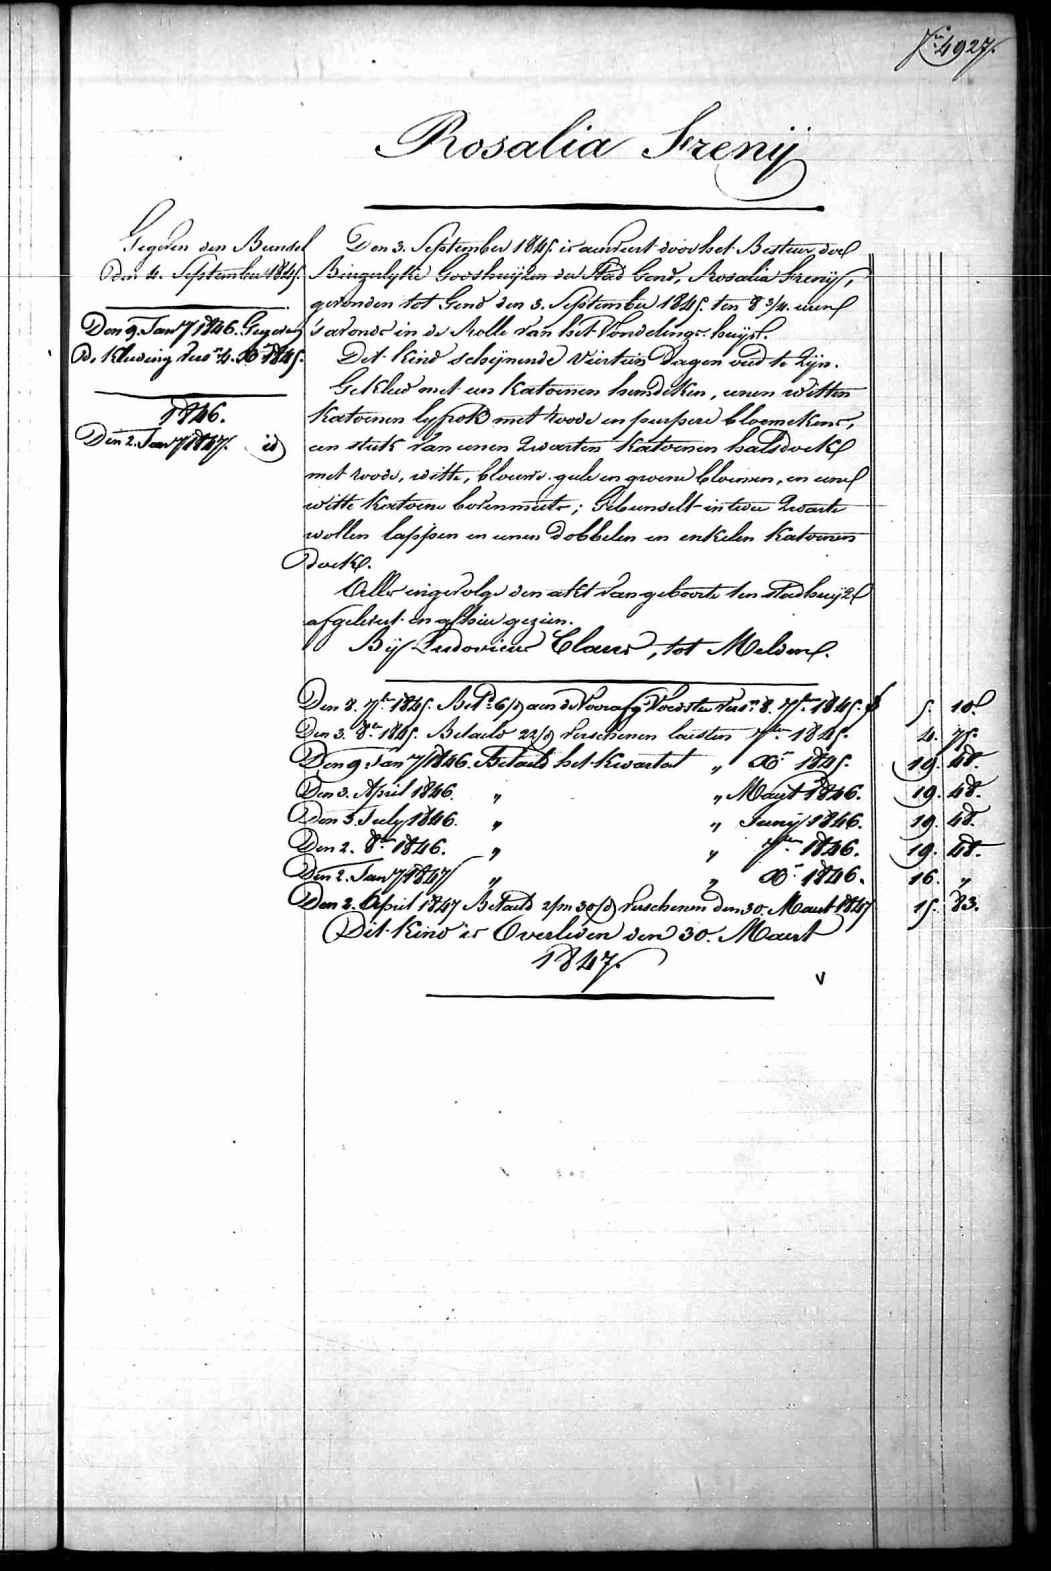 No. 4927.
Rosalia Frenij
Gegeven den Bundsel
den 4. September 1845.
Den 9. Jany 1846. Gegeven
de Kleeding vers. 4. Xr. 1845.
1846.
Den 2. Jany 1847. id
Den 3. September 1845. is aenveert door het Bestuer der
Burgerlyke Godshuijzen der Stad Gend, Rosalia Frenij,
gevonden tot Gend den 3. September 1845. ten 8 3/4. uren
's avonds in de Rolle van het Vondelings-huijs.
Dit Kind schijnende Viertien Dagen oud te Zijn.
Gekleed met een Katoenen hemdeken, eenen witten
Katoenen lyfrok met roode en purpere bloemekens,
een stuk van eenen Zwarten Katoenen halsdoek
met roode, witte, blouwe. gele en groene bloemen, en eene
witte Katoene bovenmuts; Gebunselt in twee Zwarte
wollen lappen en eenen Dobbelen en enkelen Katoenen
doek.
Alles ingevolge den akt van geboorte ten stadhuijze
afgelevert en alhier gezien.
Bij Ludovicus Claus, tot Melden.
Den 8. 7br. 1845. Betd. 6/d aen de Voorafg. Voedster vers. 8. 7br. 1845. 5. 10.
Den 3. 8br. 1845. Betaeld 22/d verschenen laesten 7ber 1845. 4. 75.
Den 9. Jany 1846. Betaeld het Kwartal " Xr. 1845. 19. 48.
Den 3. April 1846. " " Maert 1846. 19. 48.
Den 3. July 1846. " " Junij 1846. 19. 48.
Den 2. 8br. 1846. " " 7ber 1846. 19. 48.
Den 2. Jany 1847 " " Xr. 1846. 16. "
Den 2. April 1847 Betaeld 2/m 30/d verschenen den 30. Maert 1847 15. 83.
Dit Kind is Overleden den 30. Maert
1847.
v